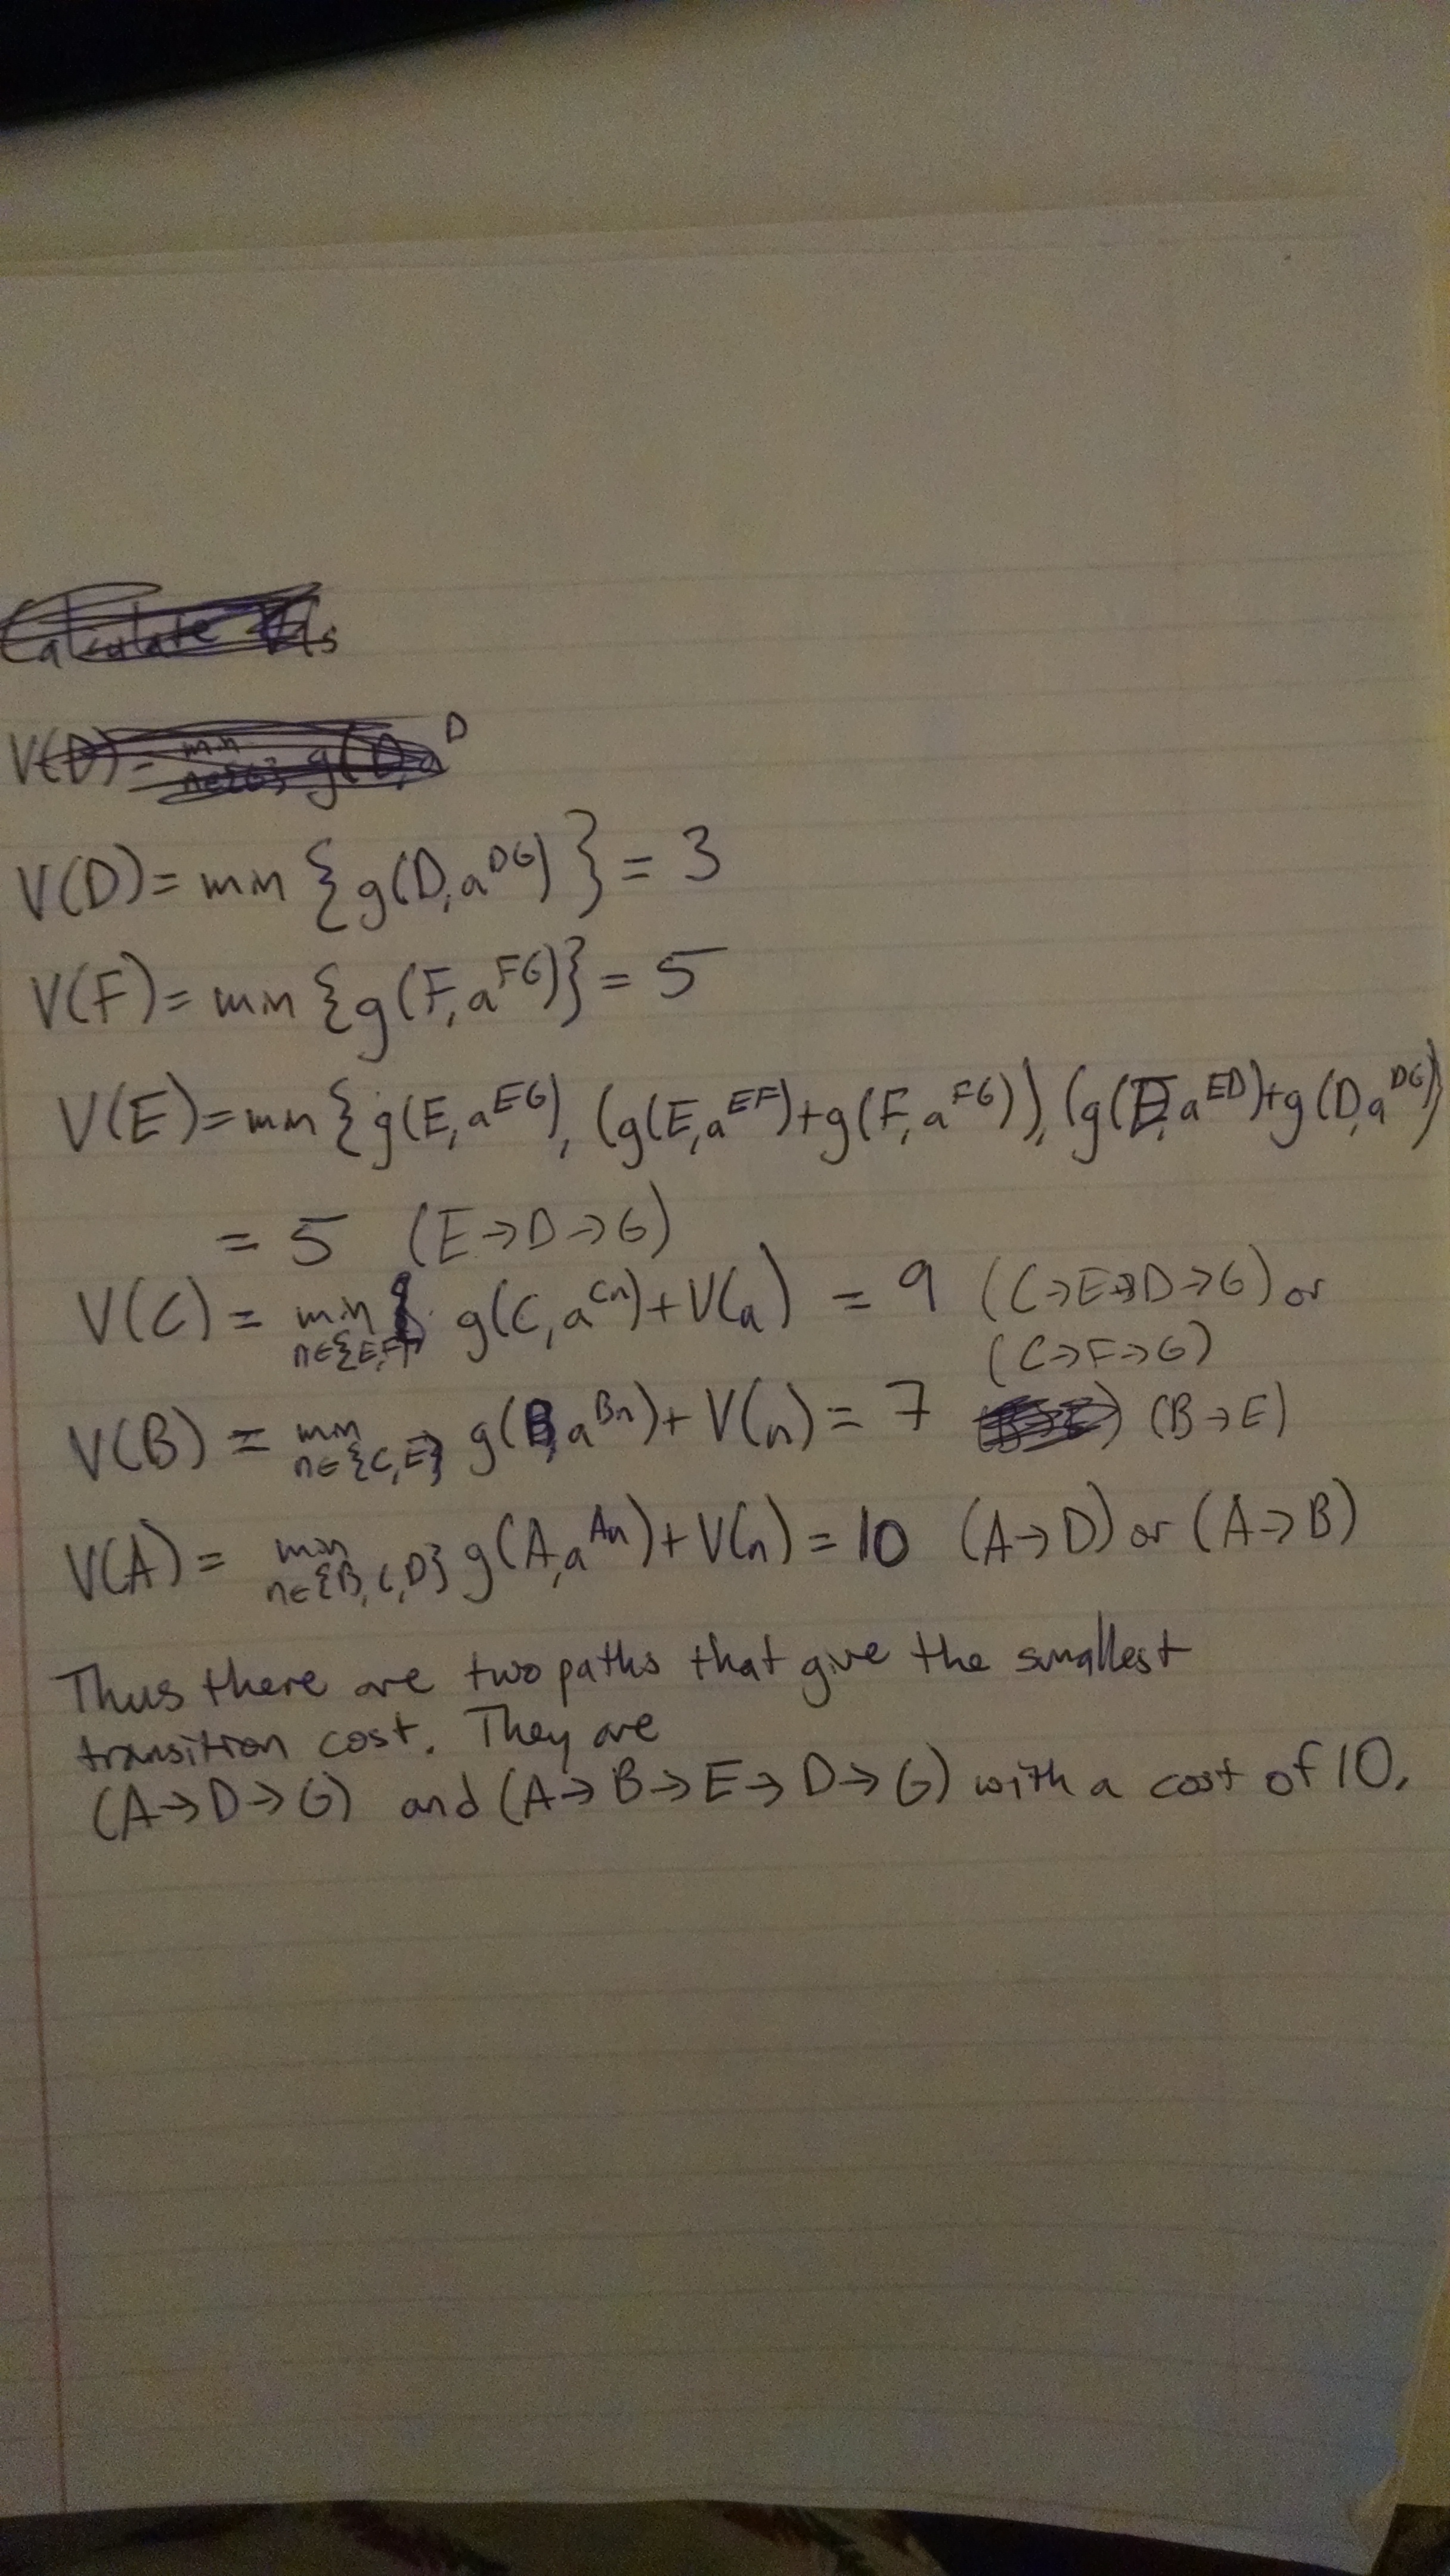 Calculate
V(D) = min n∈{G} g(D,a^D
V(D) = min {g(D,a^DG)} = 3
V(F) = min {g(F,a^FG)} = 5
V(E) = min {g(E,a^EG), (g(E,a^EF)+g(F,a^FG)), (g(E,a^ED)+g(D,a^DG)}
= 5 (E→D→G)
V(C) = min n∈{E,F} g(C,a^Cn)+V(a) = 9 (C→E→D→G) or
(C→F→G)
V(B) = min n∈{C,E} g(B,a^Bn)+V(n) = 7 (B→E)
V(A) = min n∈{B,C,D} g(A,a^An)+V(n) = 10 (A→D) or (A→B)
Thus there are two paths that give the smallest
transition cost. They are
(A→D→G) and (A→B→E→D→G) with a cost of 10.